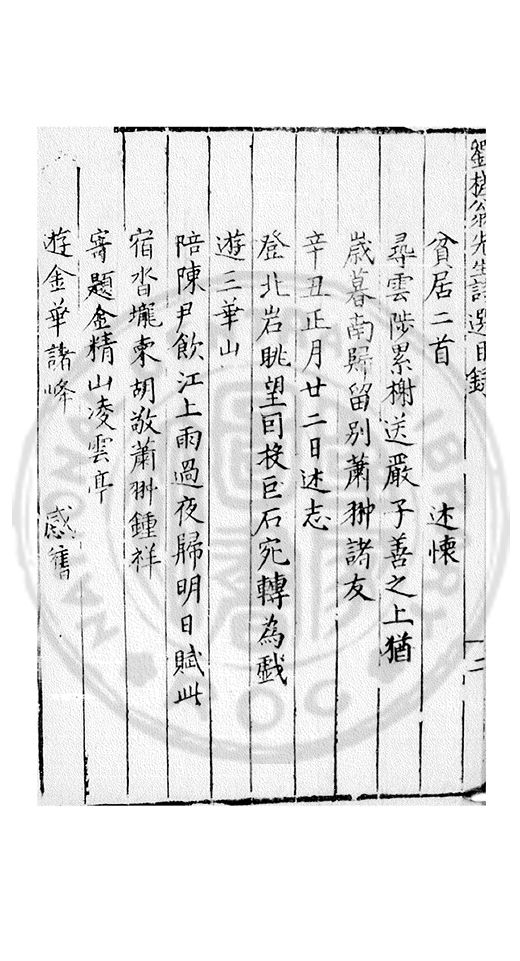 劉槎翁先生詩選目錄 二
貧居二首 述懷
尋雲陟累榭送嚴子善之上猶
歲暮南歸留別蕭翀諸友
辛丑正月廿二日述志
登北岩眺望囘投巨石宛轉為戲
遊三華山
陪陳尹飲江上雨過夜歸明日賦此
宿沓壠柬胡敬蕭翀鍾祥
寄題金精山凌雲亭
遊金華諸峰 感舊